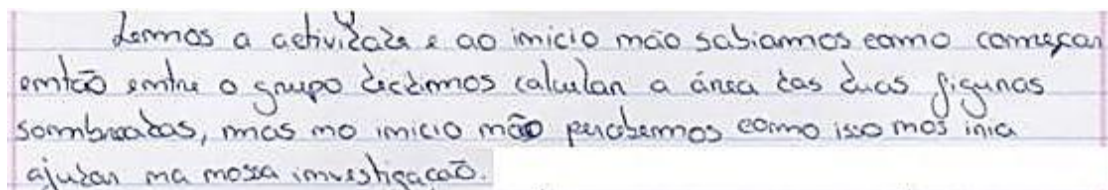 Lemos a actividade e ao inicio não sabiamos como começar
então entre o grupo decidimos calcular a área das duas figuras
sombreadas, mas no inicio não percebemos como isso nos iria
ajudar na nossa investigação.